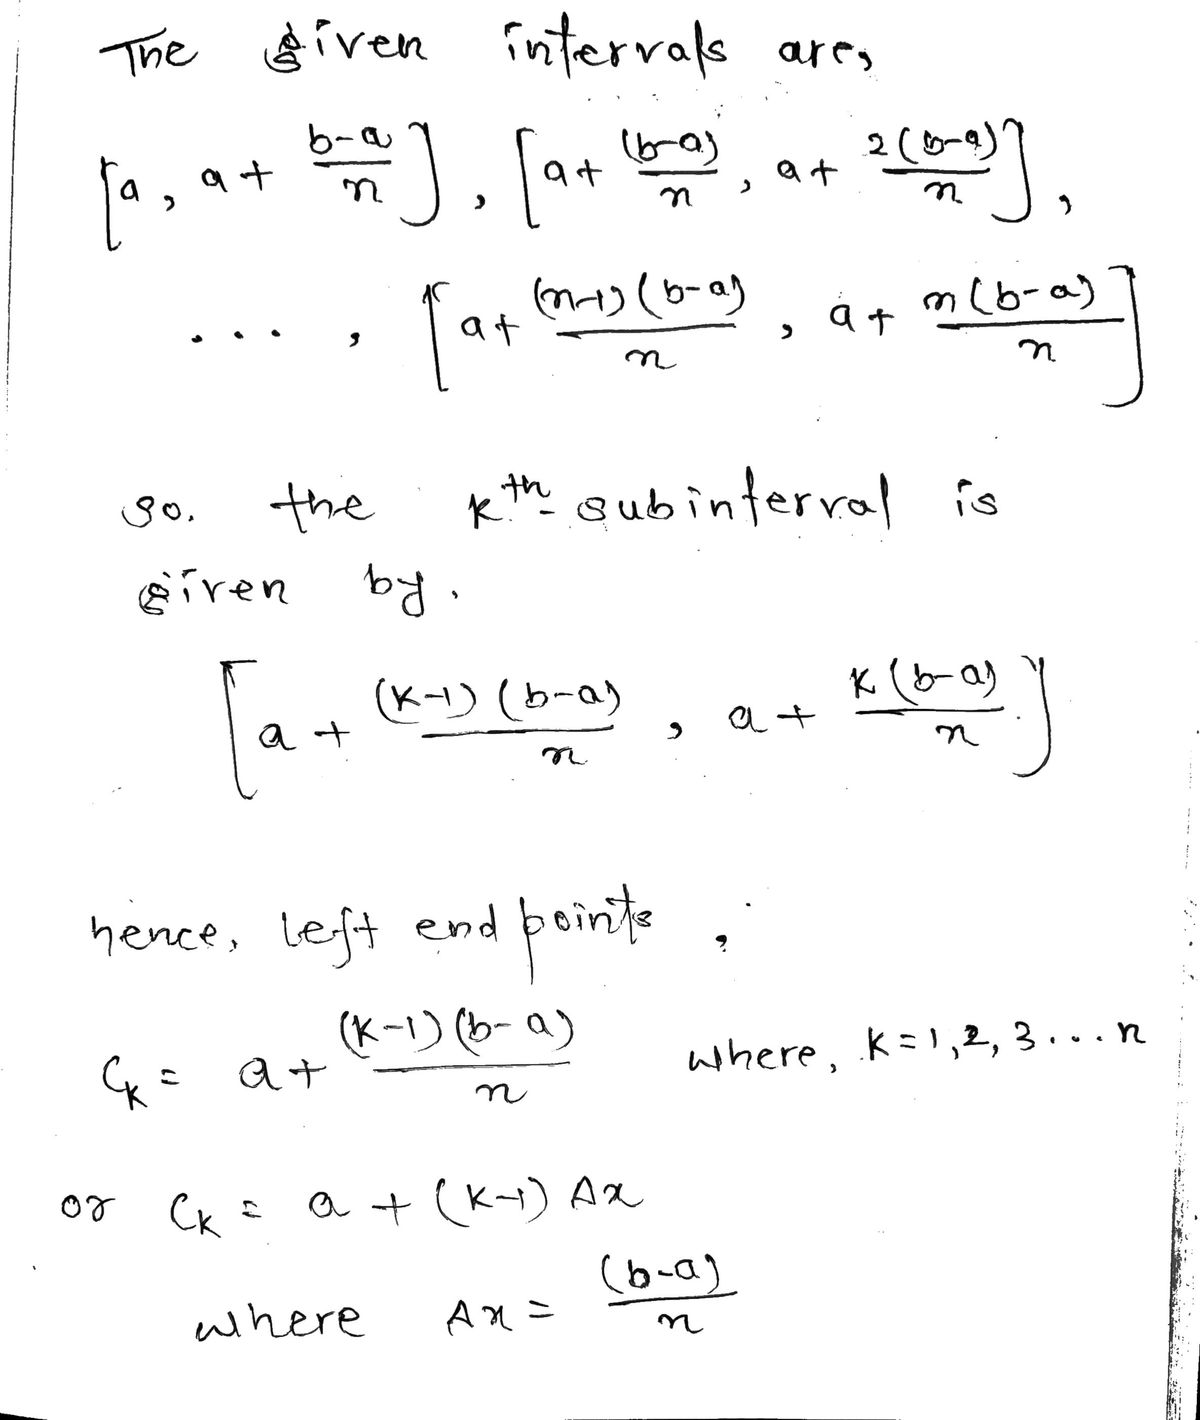 The given intervals are,
[a, a + \frac{b-a}{n}], [a + \frac{(b-a)}{n}, a + \frac{2(b-a)}{n}],
..., [a + \frac{(n-1)(b-a)}{n}, a + \frac{n(b-a)}{n}]
So. the k^{th} subinterval is
given by.
[a + \frac{(k-1)(b-a)}{n}, a + \frac{k(b-a)}{n}]
hence, left end points,
C_k = a + \frac{(k-1)(b-a)}{n} where, k = 1, 2, 3 ... n
or C_k = a + (k-1) Δx
where Δx = \frac{(b-a)}{n}